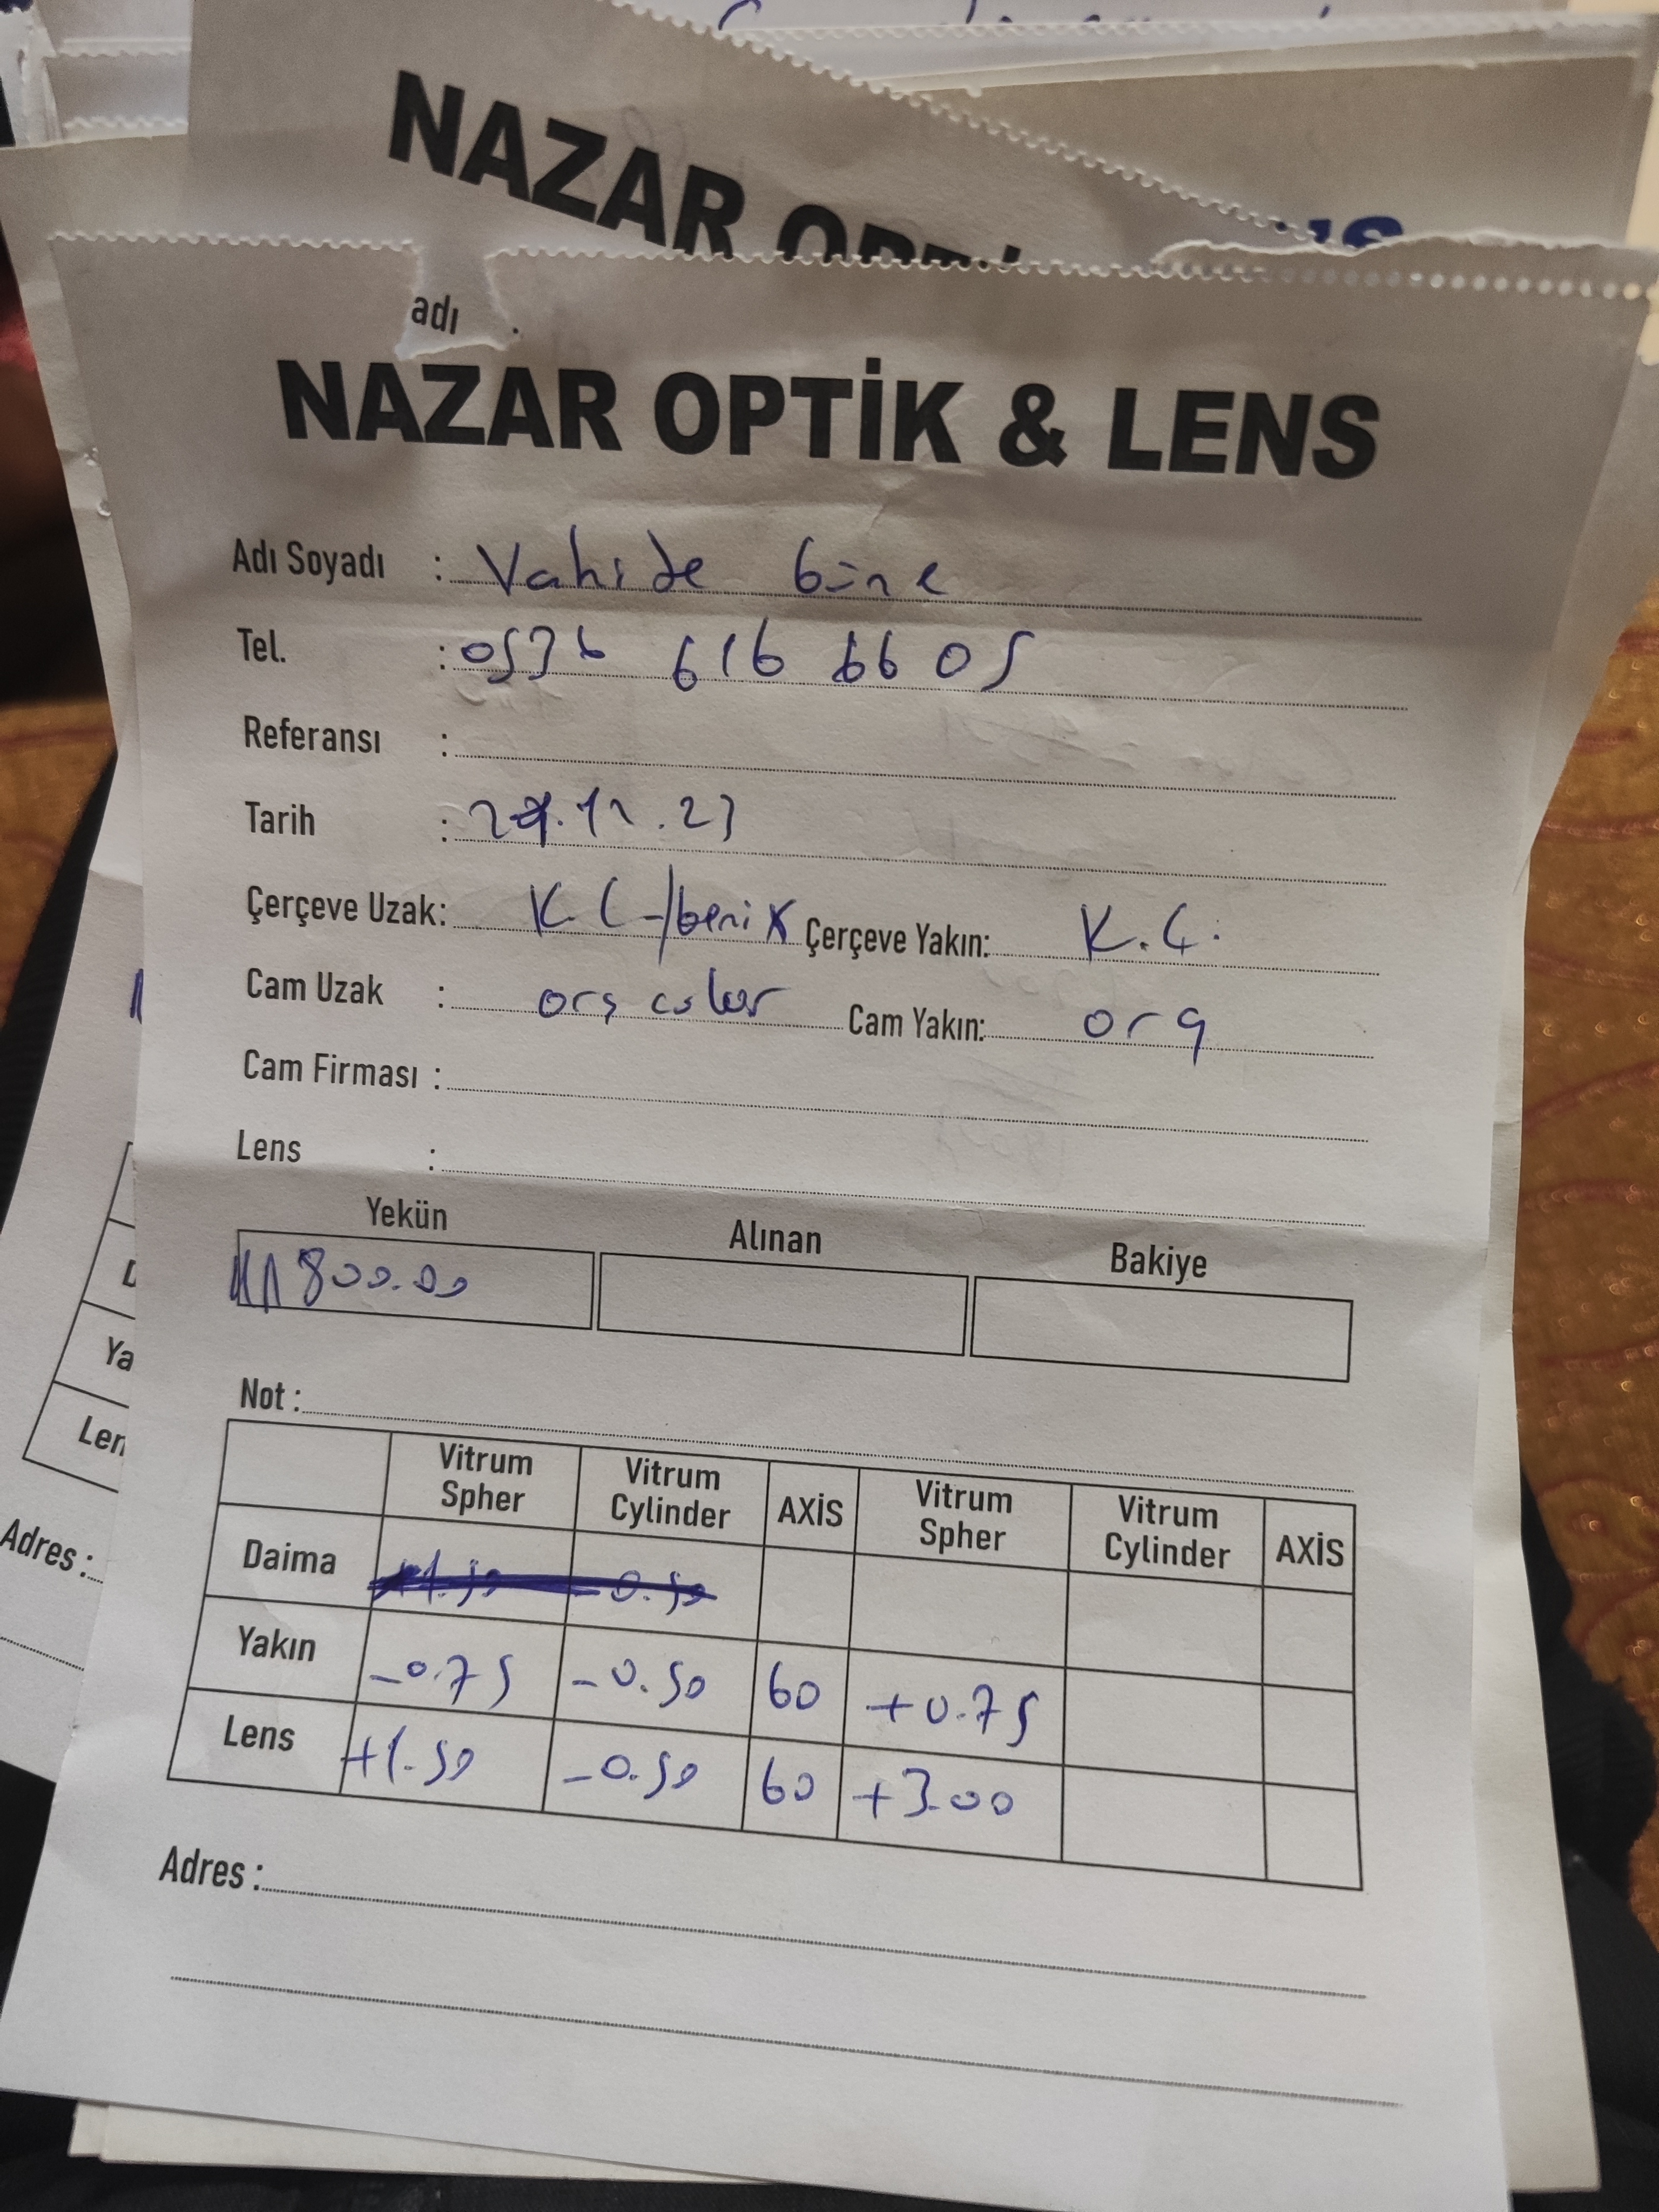 NAZAR OPTİ
adı
NAZAR OPTİK & LENS
Adı Soyadı : Vahide
Tel. : 0536 616 6605
Referansı :
Tarih : 29.12.23
Çerçeve Uzak: K.Ç Çerçeve Yakın: K.Ç.
Cam Uzak : org color Cam Yakın: org
Cam Firması :
Lens :
Yekün Alınan Bakiye
800.00
Not :
Vitrum Spher Vitrum Cylinder AXİS Vitrum Spher Vitrum Cylinder AXİS
Daima +1.50 -0.50
Yakın -0.75 -0.50 60 +0.75
Lens +1.50 -0.50 60 +3.00
Adres :
Ya
Len
Adres :